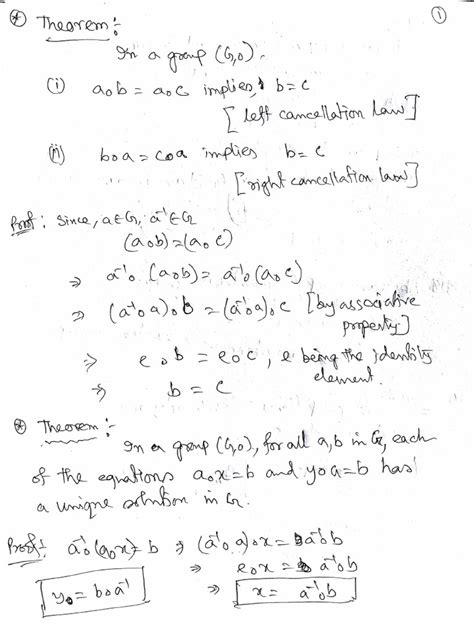 ①
⊛ Theorem :-
In a group (G,o).
(i) aob = aoc implies, b=c
[left cancellation law]
(ii) boa = coa implies b=c
[right cancellation law]
Proof : Since, a∈G, a⁻¹∈G
(aob)=(aoc)
⇒ a⁻¹o (aob) = a⁻¹o (aoc)
⇒ (a⁻¹oa)ob = (a⁻¹oa)oc [by associative
property]
⇒ eob = eoc, e being the identity
element.
⇒ b = c
⊛ Theorem :-
In a group (G,o), for all a,b in G, each
of the equations aox=b and yoa=b has
a unique solution in G.
Proof :- a⁻¹o(aox)=b ⇒ (a⁻¹oa)ox = a⁻¹ob
⇒ eox = a⁻¹ob
yo = boa⁻¹ ⇒ x = a⁻¹ob